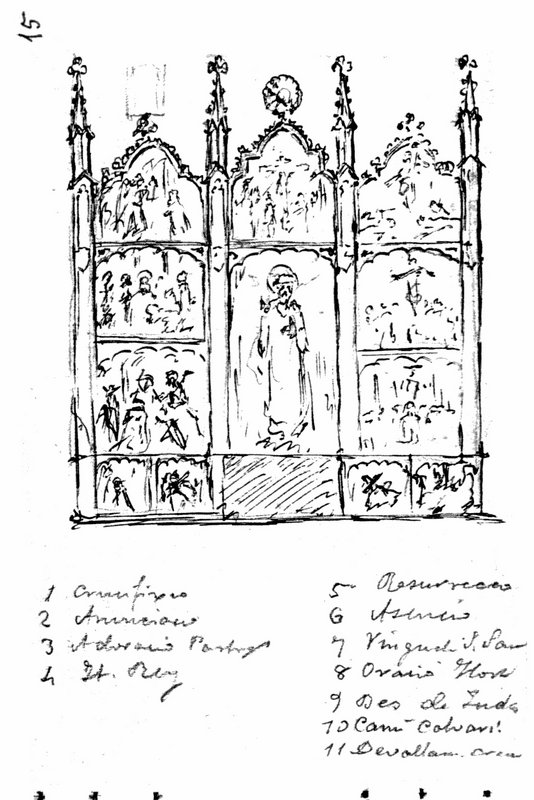 15
1 Crucifixio
2 Anunciacio
3 Adoracio Pastors
4 Id. Rey
5 Resurreccio
6 Asencio
7 Vinguda
8 Oracio Hort
9 Bes de Judas
10 Cami Calvari
11 Devallam. creu